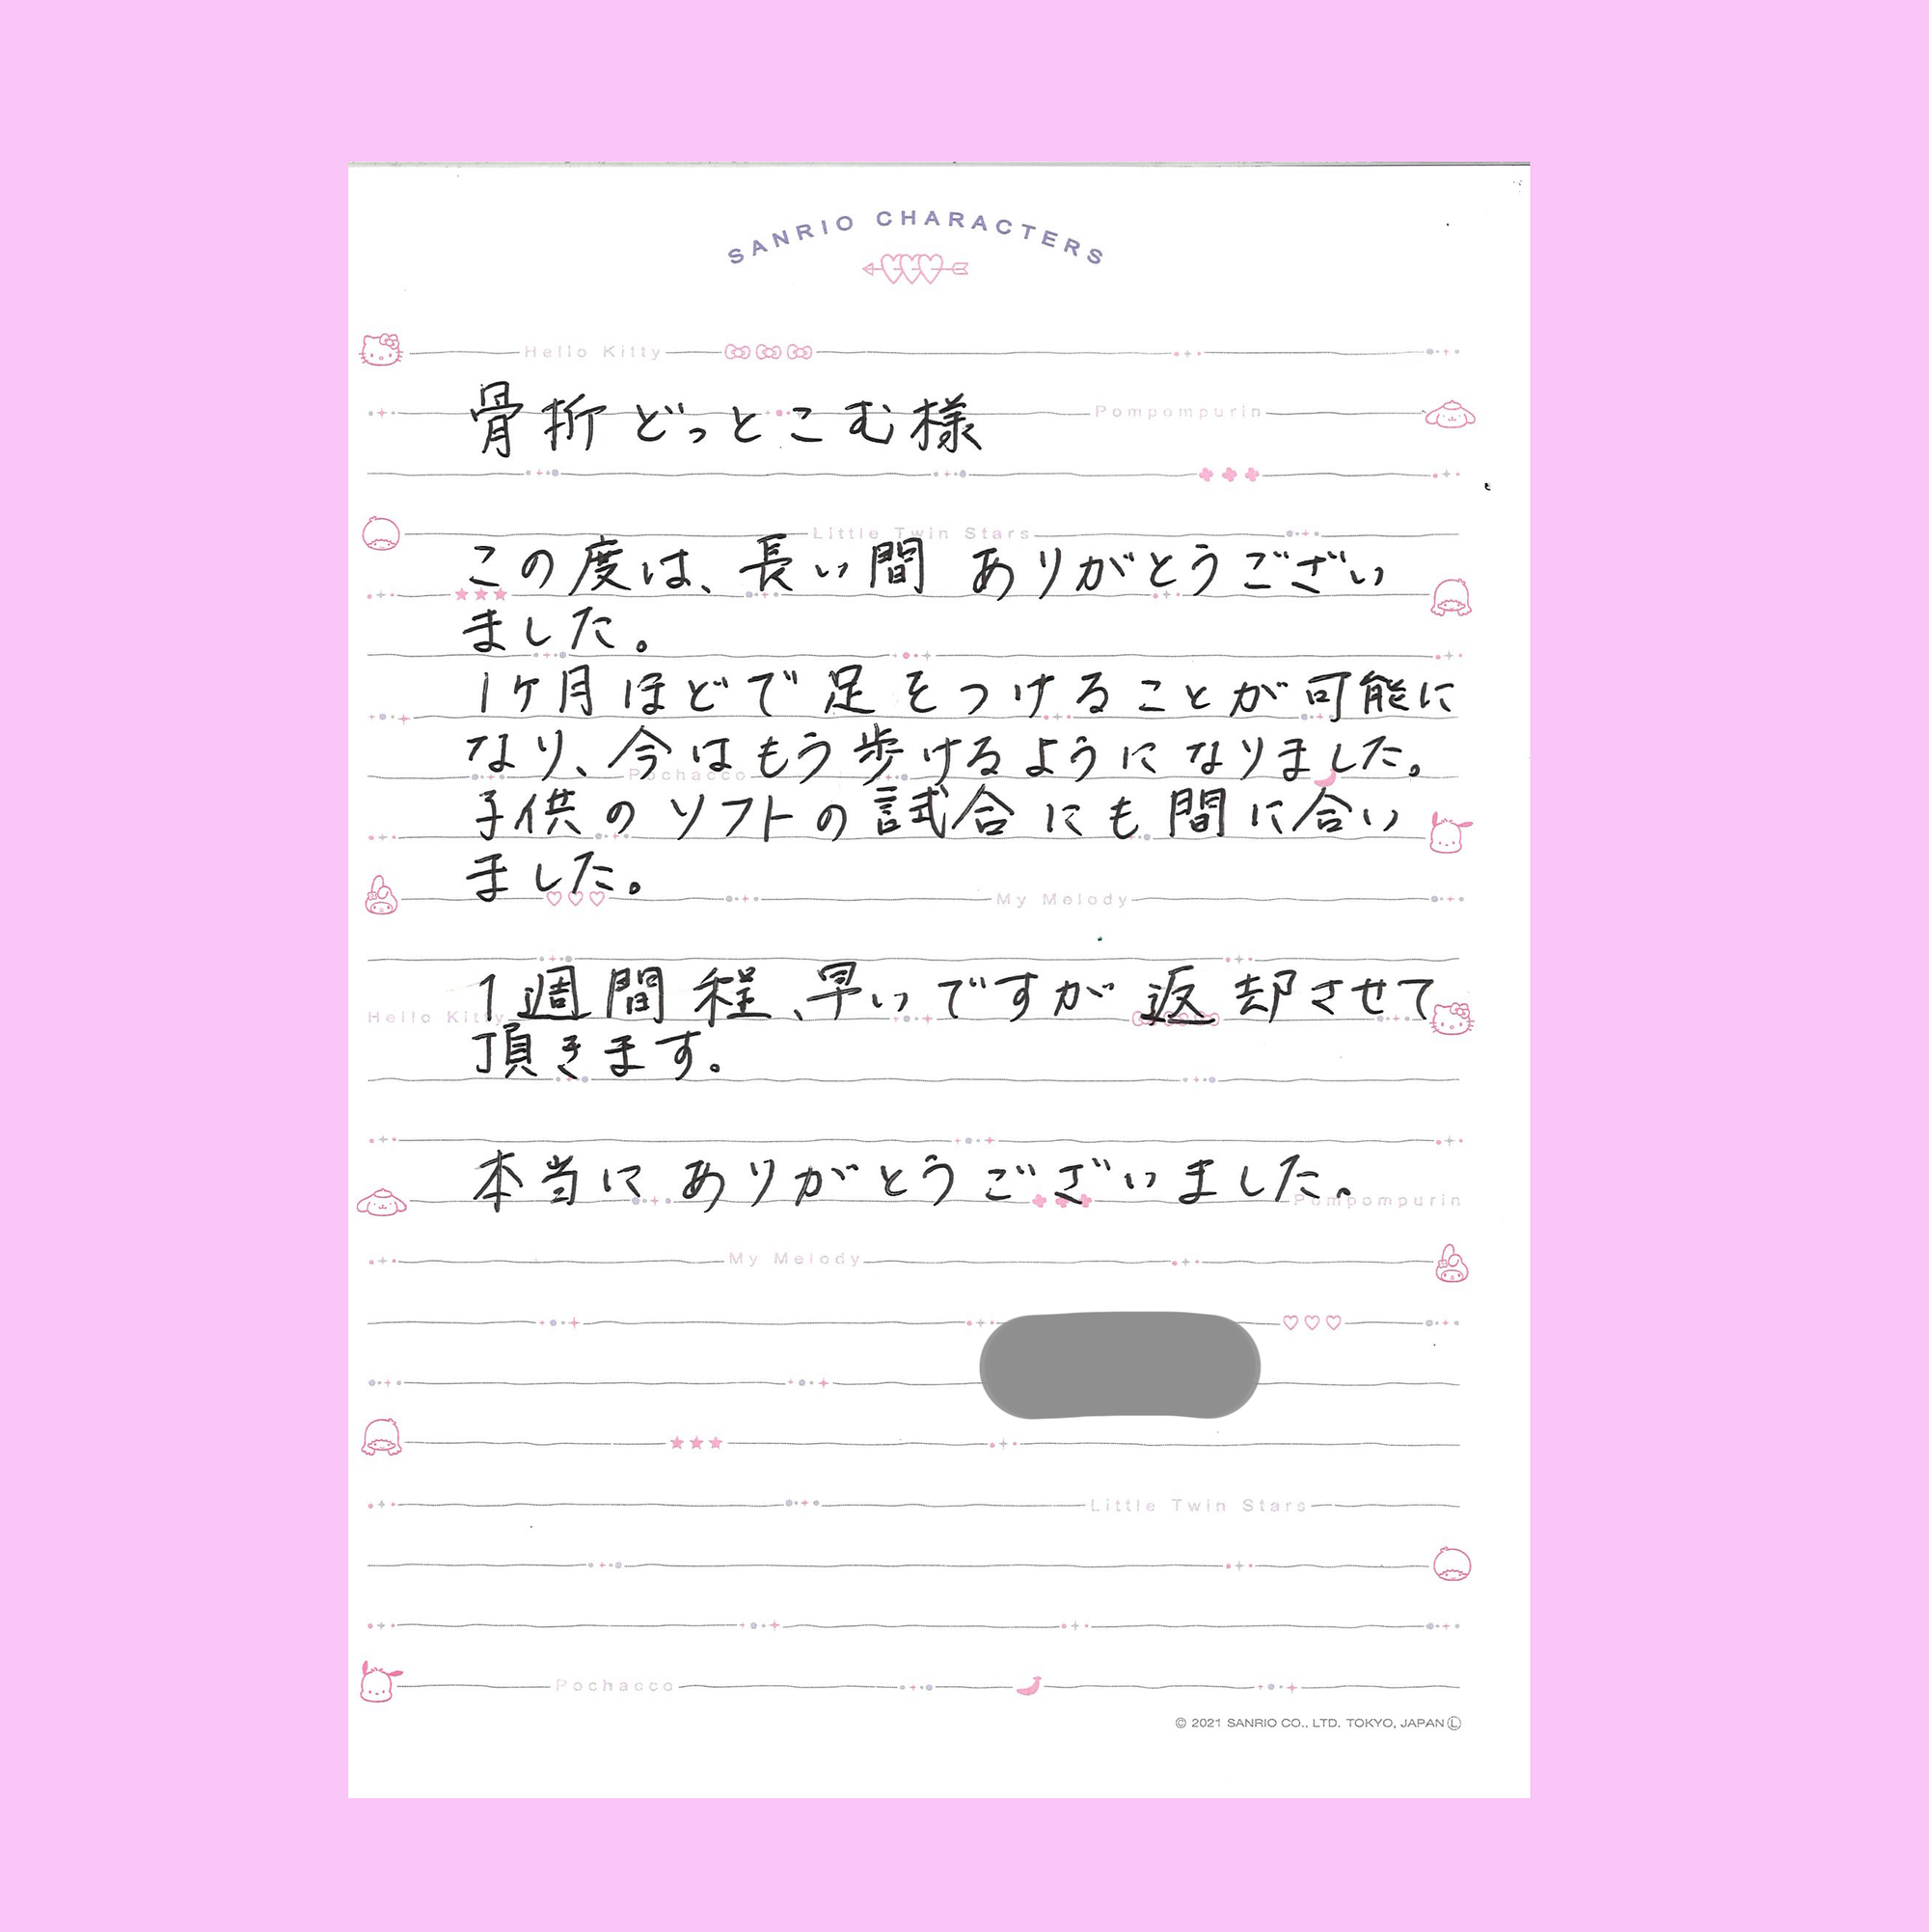 SANRIO CHARACTERS
Hello Kitty
Pompompurin
骨折どっとこむ様
Little Twin Stars
この度は、長い間 ありがとうござい
ました。
1ヶ月ほどで足をつけることが可能に
なり、今はもう歩けるようになりました。
Pochacco
子供のソフトの試合にも間に合い
ました。
My Melody
1週間程、早いですが返却させて
Hello Kitty
頂きます。
本当にありがとうございました。
Pompompurin
My Melody
Little Twin Stars
Pochacco
© 2021 SANRIO CO., LTD. TOKYO, JAPAN Ⓛ